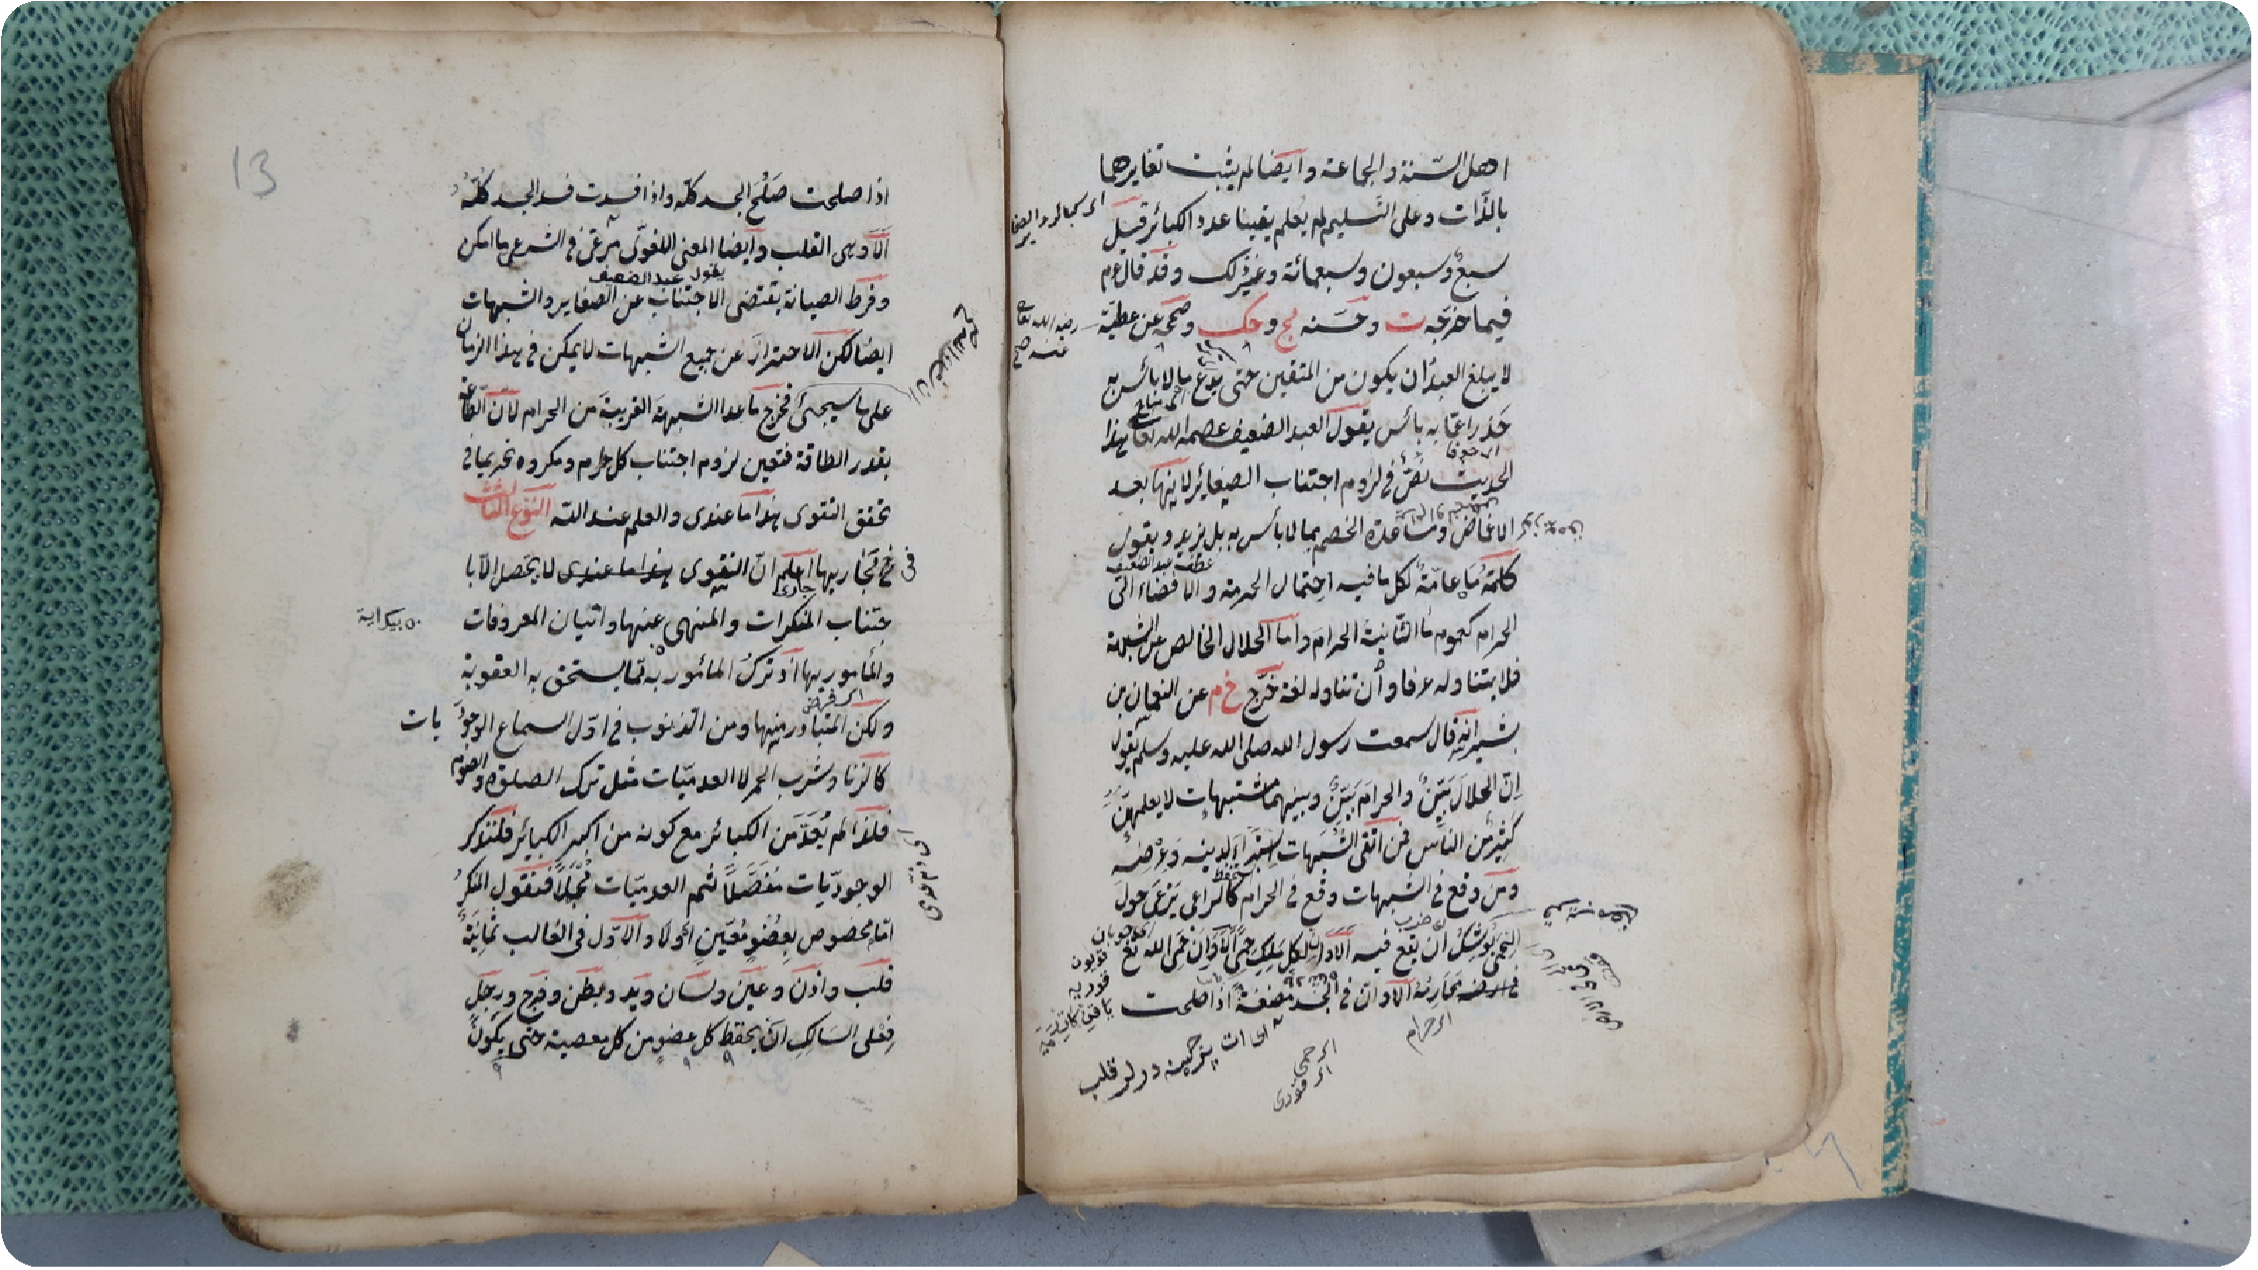 اهل السّنة والجماعة وايضا لم يثبت تغايرهما
بالذّات وعلى التّسليم لم يُعلم يقينا عدد الكبائر قيل
سبعٌ وسبعون وسبعمائة وغير ذلك وقد قال عم
فيما خرّجه ت وحسّنه مج وحك وصحّحه عن عطيّة
رضى الله تعالى عنه صح
لا يبلغ العبد ان يكون من المتقين حتى يدع ما لا بأس به
حذرا عمّا به بأس يقول العبد الضعيف عصمه الله تعالى هذا
الحديث نصّ في لزوم اجتناب الصغائر لانها بعد
الاغماض ومساعدة الخصم مما لا بأس به بل نزيد ويقول
عطف عبد الضعيف
كلمة ما عامّة لكل ما فيه احتمال الحرمة والافضاء الى
الحرام كعموم ما الثانية الحرام واما الحلال الخالص عن الشبهة
فلا يتناوله عرفا وان تناوله لغة خرّج خ م عن النعمان بن
بشير انه قال سمعت رسول الله صلى الله عليه وسلم يقول
انّ الحلال بيّنٌ والحرام بيّنٌ وبينهما مشتبهات لا يعلمهنّ
كثير من الناس فمن اتقى الشبهات استبرأ لدينه وعرضه
ومن وقع في الشبهات وقع في الحرام كالراعى يرعى حول
الحمى يوشك ان يقع فيه الا وان لكل ملك حمًى الا وان حمى الله تع
في ارضه محارمه الا وان في الجسد مضغة اذا صلحت
اى حرام
13
اذا صلحت صَلُحَ الجسد كلّه واذا فسدت فسد الجسد كلّه
الا وهى القلب وايضا المعنى اللغوىّ مرعىّ في الشرع ما امكن
يقول عبد الضعيف
وفرط الصيانة يقتضى الاجتناب عن الصغاير والشبهات
ايضا لكن الاحتراز عن جميع الشبهات لا يمكن في هذا الزمان
على ما سيجئ فخرج ما عدا الشبهة القريبة من الحرام لان الطاعة
بقدر الطاقة فتعين لزوم اجتناب كل حرام ومكروه تحريما في
تحقق التقوى هذا ما عندى والعلم عند الله النوع الثالث
في مجاريها اعلم انّ التقوى هذا ما عندى لا يحصل الا با
جتناب المنكرات والمنهى عنها واتيان المعروفات
والمأمور بها اذ ترك المأمور به مما يستحق به العقوبة
ولكن المتبادر منها ومن الذنوب في اوّل السماع الوجود
يات
كالزنا وشرب الخمر لا العدميّات مثل ترك الصلوة والصوم
فلذا لم يُعدّ من الكبائر مع كونه من اكبر الكبائر فلنذكر
الوجوديّات مفصّلاً ثم العدميّات مجملاً فنقول المنكر
امّا مخصوص بعضو معيّن اولا والاوّل في الغالب ثمانية
قلب واذن وعين ولسان ويد وبطن وفرج ورجل
فعلى السالك ان يحفظ كل عضو من كل معصية حتى يكون